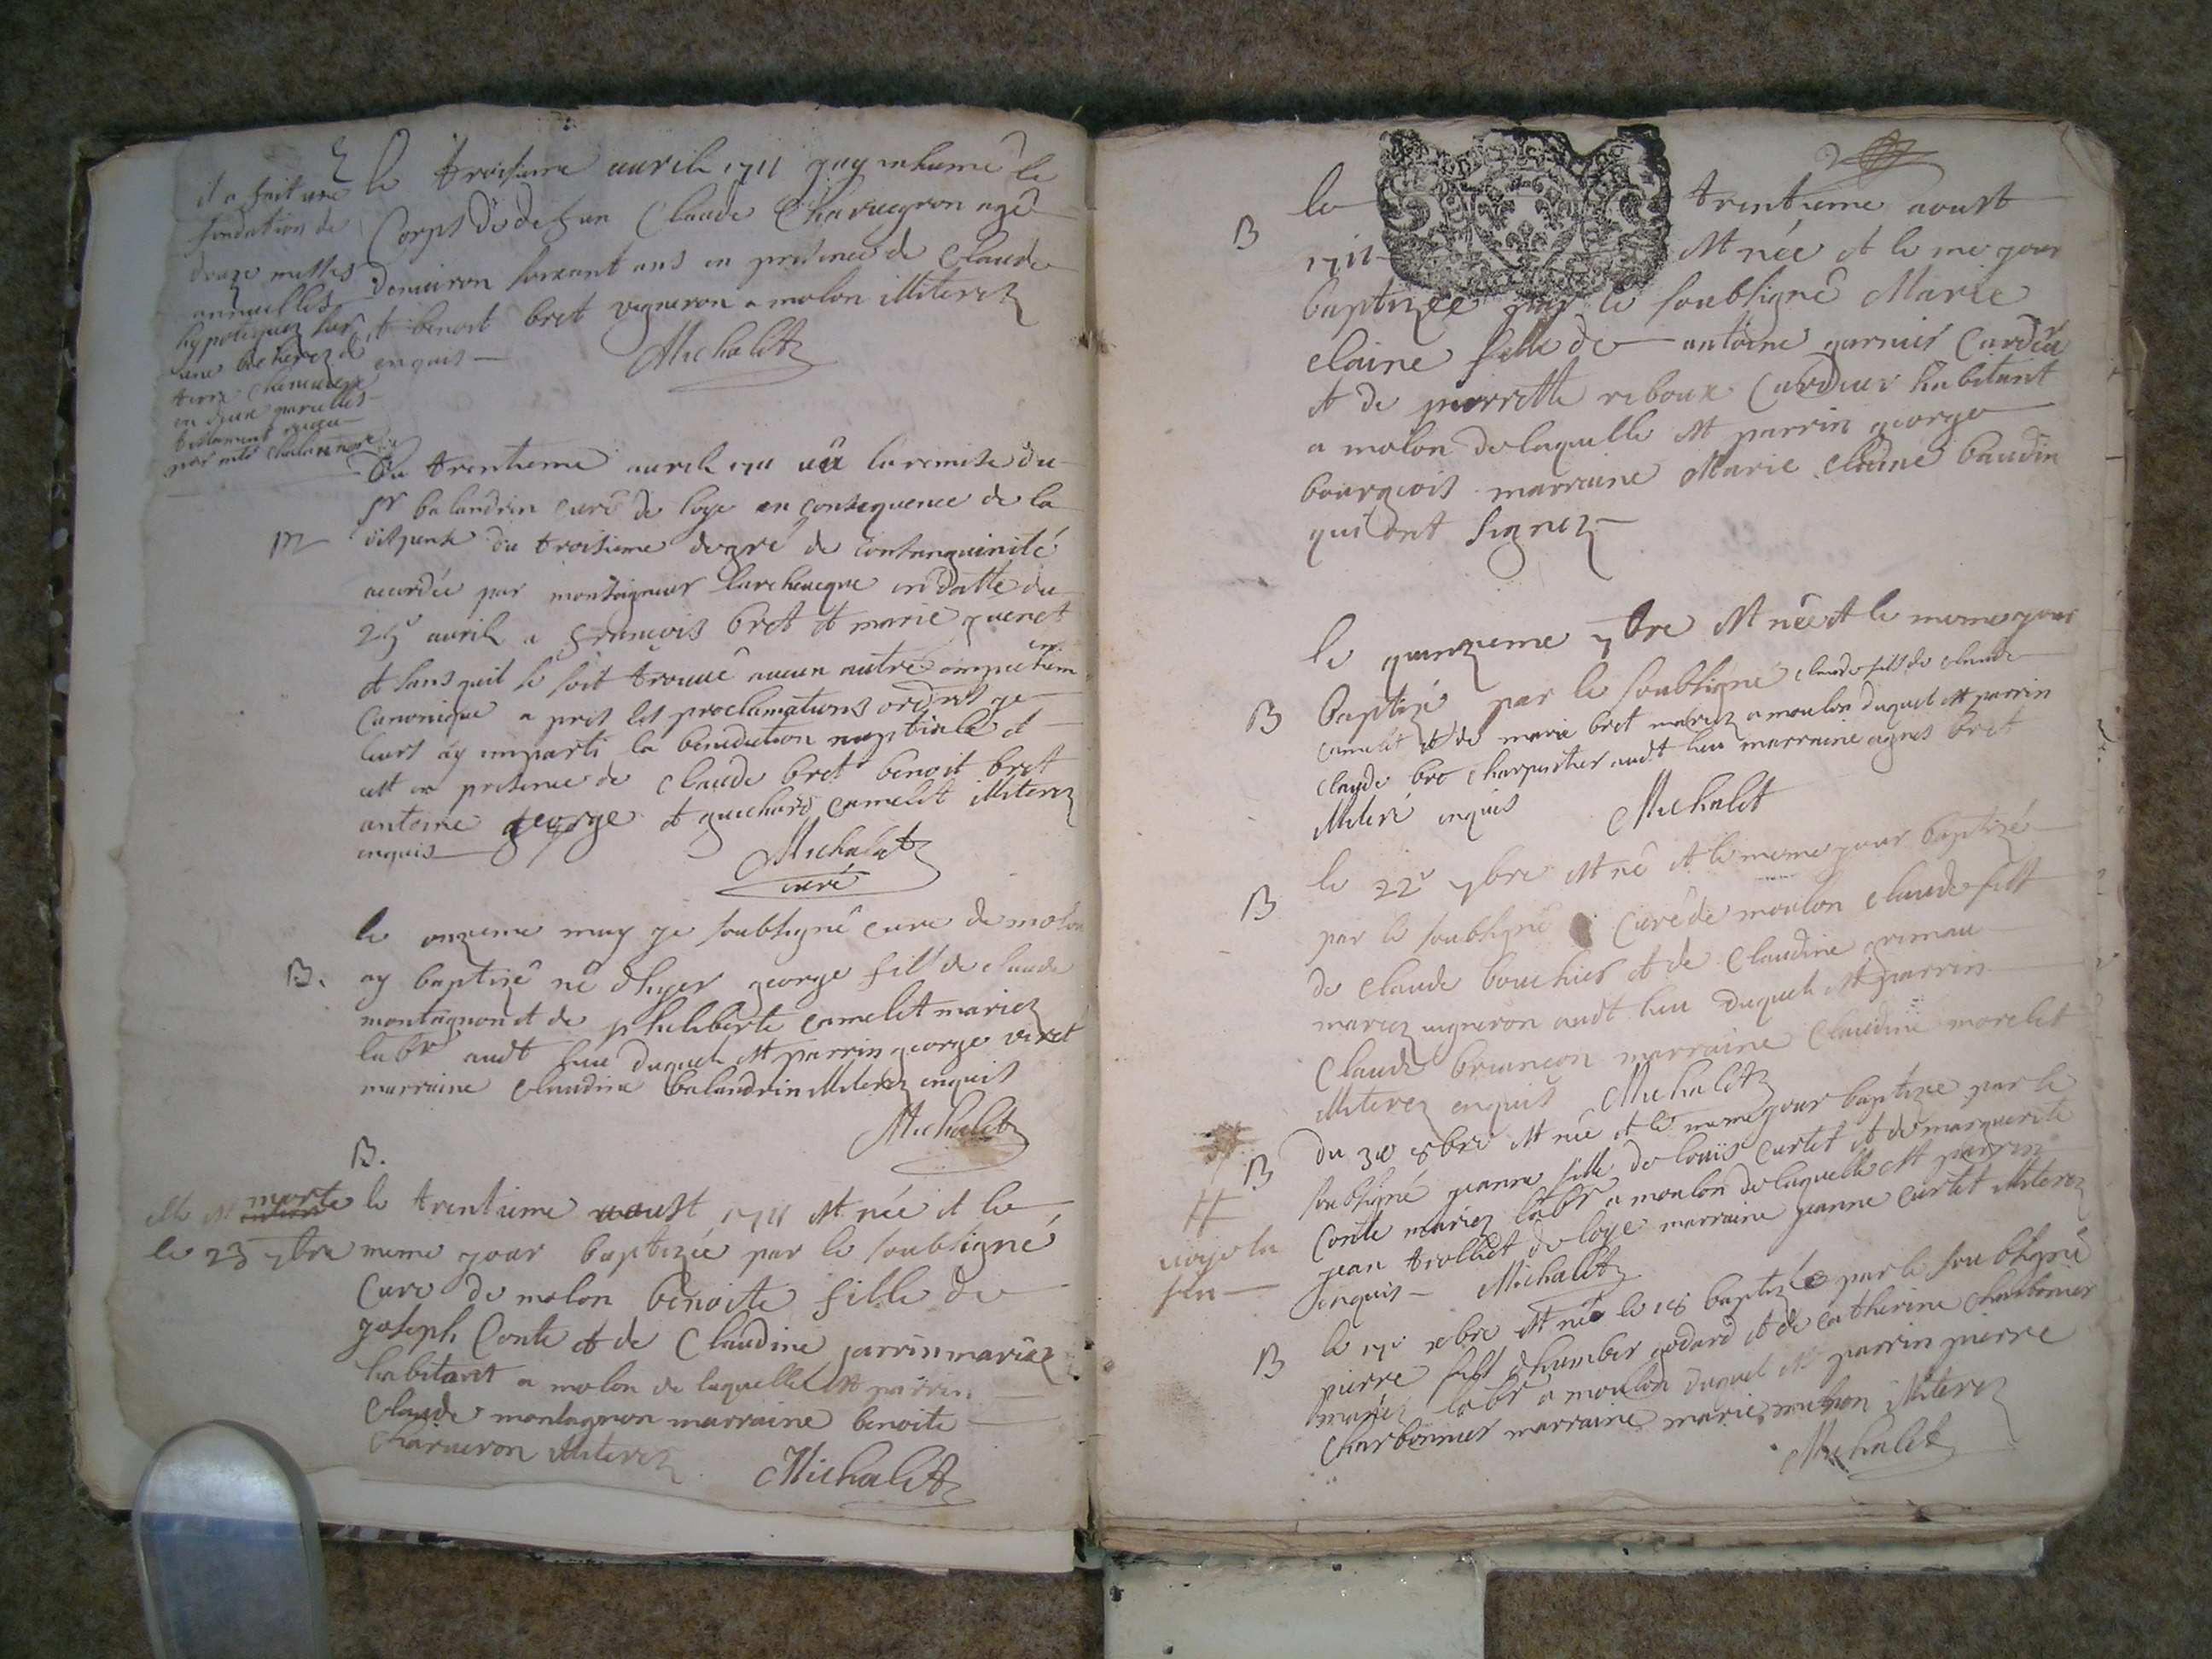 il a fait une
fondation de
douze messes
annuelles
hypotequez sur
une bicherez de
terre cheneviere
en deux parcelles
testament receu
par mtre
le troisieme avril 1711 j'ay inhumé le
Corps de defun Claude Charvegron agé
denviron soixant ans en presence de Claude
et benoit bret vigneron a molon illiterez
enquis
Michalet
M
Du trentieme avril 1711 vû la remise du
sr balandrin curé de loye en consequence de la
dispense du troisieme degré de consanguinité
accordée par monseigneur larcheveque en datte du
avril a francois bret et marie guenet
et sans quil se soit trouvé aucun autre empechem
canonique a pres les proclamations ordres je
leurs ay imparti la benediction nuptiale et
cest en presence de claude bret benoit bret
antoine george et guichard camelet illiterez
enquis
Michalet
curé
B.
le onzieme may je soubsigné curé de molon
ay baptizé né dhyer george fils de claude
montagnon et de philiberte camelet mariez
labr audt lieu duquel est parrin george viret
marraine claudine balandrin illiterez enquis
Michalet
B.
elle est morte
le 23 7bre
le trentieme aoust 1711 est née et le
meme jour baptizée par le soubsigné
Curé de molon benoite fille de
joseph Conte et de Claudine parrin mariez
habitant a molon de laquelle est parrin
Claude montagnon marraine benoite
charveron illiterez
Michalet
B
le trentieme aoust
1711 est née et le me jour
baptizée par le soubsigné Marie
claine fille de antoine garnier Cardeur
et de pierrette reboux Cardeur habitant
a molon de laquelle est parrin george
bourgeois marraine Marie claine baudin
qui ont signez
B
le quinzieme 7bre est né et le meme jour
Baptizé par le soubsigné claude fils de claude
camelet et de marie bret mariez a moulon duquel est parrin
claude bro charpentier audt lieu marraine agnes bret
illiteré enquis Michalet
B
le 22e 7bre est né et le meme jour baptizé
par le soubsigné Curé de moulon claude fils
de claude bouchier et de claudine grimau
mariez vigneron audt lieu duquel est parrin
Claude briancon marraine Claudine morelet
illiterez enquis Michalet
B
voye la
fin
du 30 8bre est née et le meme jour baptizée par le
soubsigné jeanne fille de louis curtet et de marguerite
Conte mariez labr a moulon de laquelle est parrin
jean trolliet de loye marraine jeanne curtet illiterez
enquis Michalet
B
le xbre est né le 18 baptizé par le soubsigné
pierre fils dhumber godard et de catherine charbonier
mariez labr a moulon duquel est parrin pierre
charbonnier marraine marie illiterez
Michalet